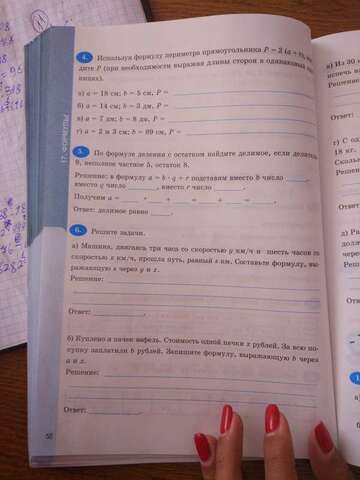 4. Используя формулу периметра прямоугольника P = 2 (a + b),
дите P (при необходимости выражая длины сторон в одинаковых
ницах).
а) a = 18 см; b = 5 см, P =
б) a = 14 см; b = 3 дм, P =
в) a = 7 дм; b = 8 дм, P =
г) a = 2 м 3 см; b = 69 см, P =
5. По формуле деления с остатком найдите делимое, если делитель
9, неполное частное 5, остаток 8.
Решение: в формулу a = b · q + r подставим вместо b число
вместо q число , вместо r число .
Получим a = · + = + =
Ответ: делимое равно .
6. Решите задачи.
а) Машина, двигаясь три часа со скоростью y км/ч и шесть часов со
скоростью x км/ч, прошла путь, равный s км. Составьте формулу, вы-
ражающую s через y и x.
Решение:
Ответ:
б) Куплено a пачек вафель. Стоимость одной пачки x рублей. За всю по-
купку заплатили b рублей. Запишите формулу, выражающую b через
a и x.
Решение:
Ответ:
17. ФОРМУЛЫ
в) Из 30
испечь
Решение
Ответ:
г) С од
18 кг.
Скольк
Решен
Ответ
д) Ра
долж
через
Реше
Отв
а)
б